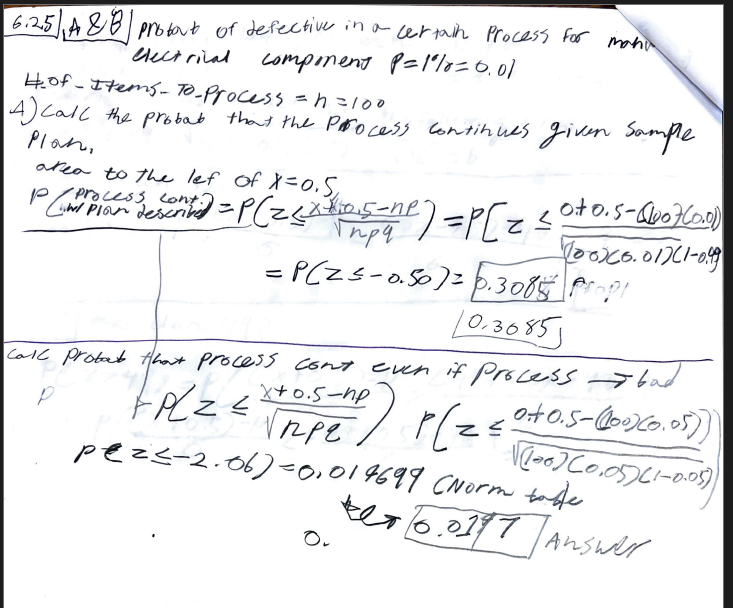 6.25 A & B probat of defective in a certain Process for
electrical component P=1%=0.01
#.of-Items-To-Process = n = 100
A) Calc the probab that the Process continues given Sample
Plan,
area to the lef of X=0.5
P(process cont. w/ Plan described) = P(z ≤ x+0.5-np / √npq) = P[z ≤ 0+0.5-(100)(0.01) / √(100)(0.01)(1-0.99
= P(z ≤ -0.50) = 0.3085
0.3085
Calc Probab that Process cont even if Process → bad
P
P(z ≤ x+0.5-np / √npq) P(z ≤ 0+0.5-(100)(0.05) / √(100)(0.05)(1-0.05))
P(z ≤ -2.06) = 0.019699 (Norm table
0.0197 Answer
0.